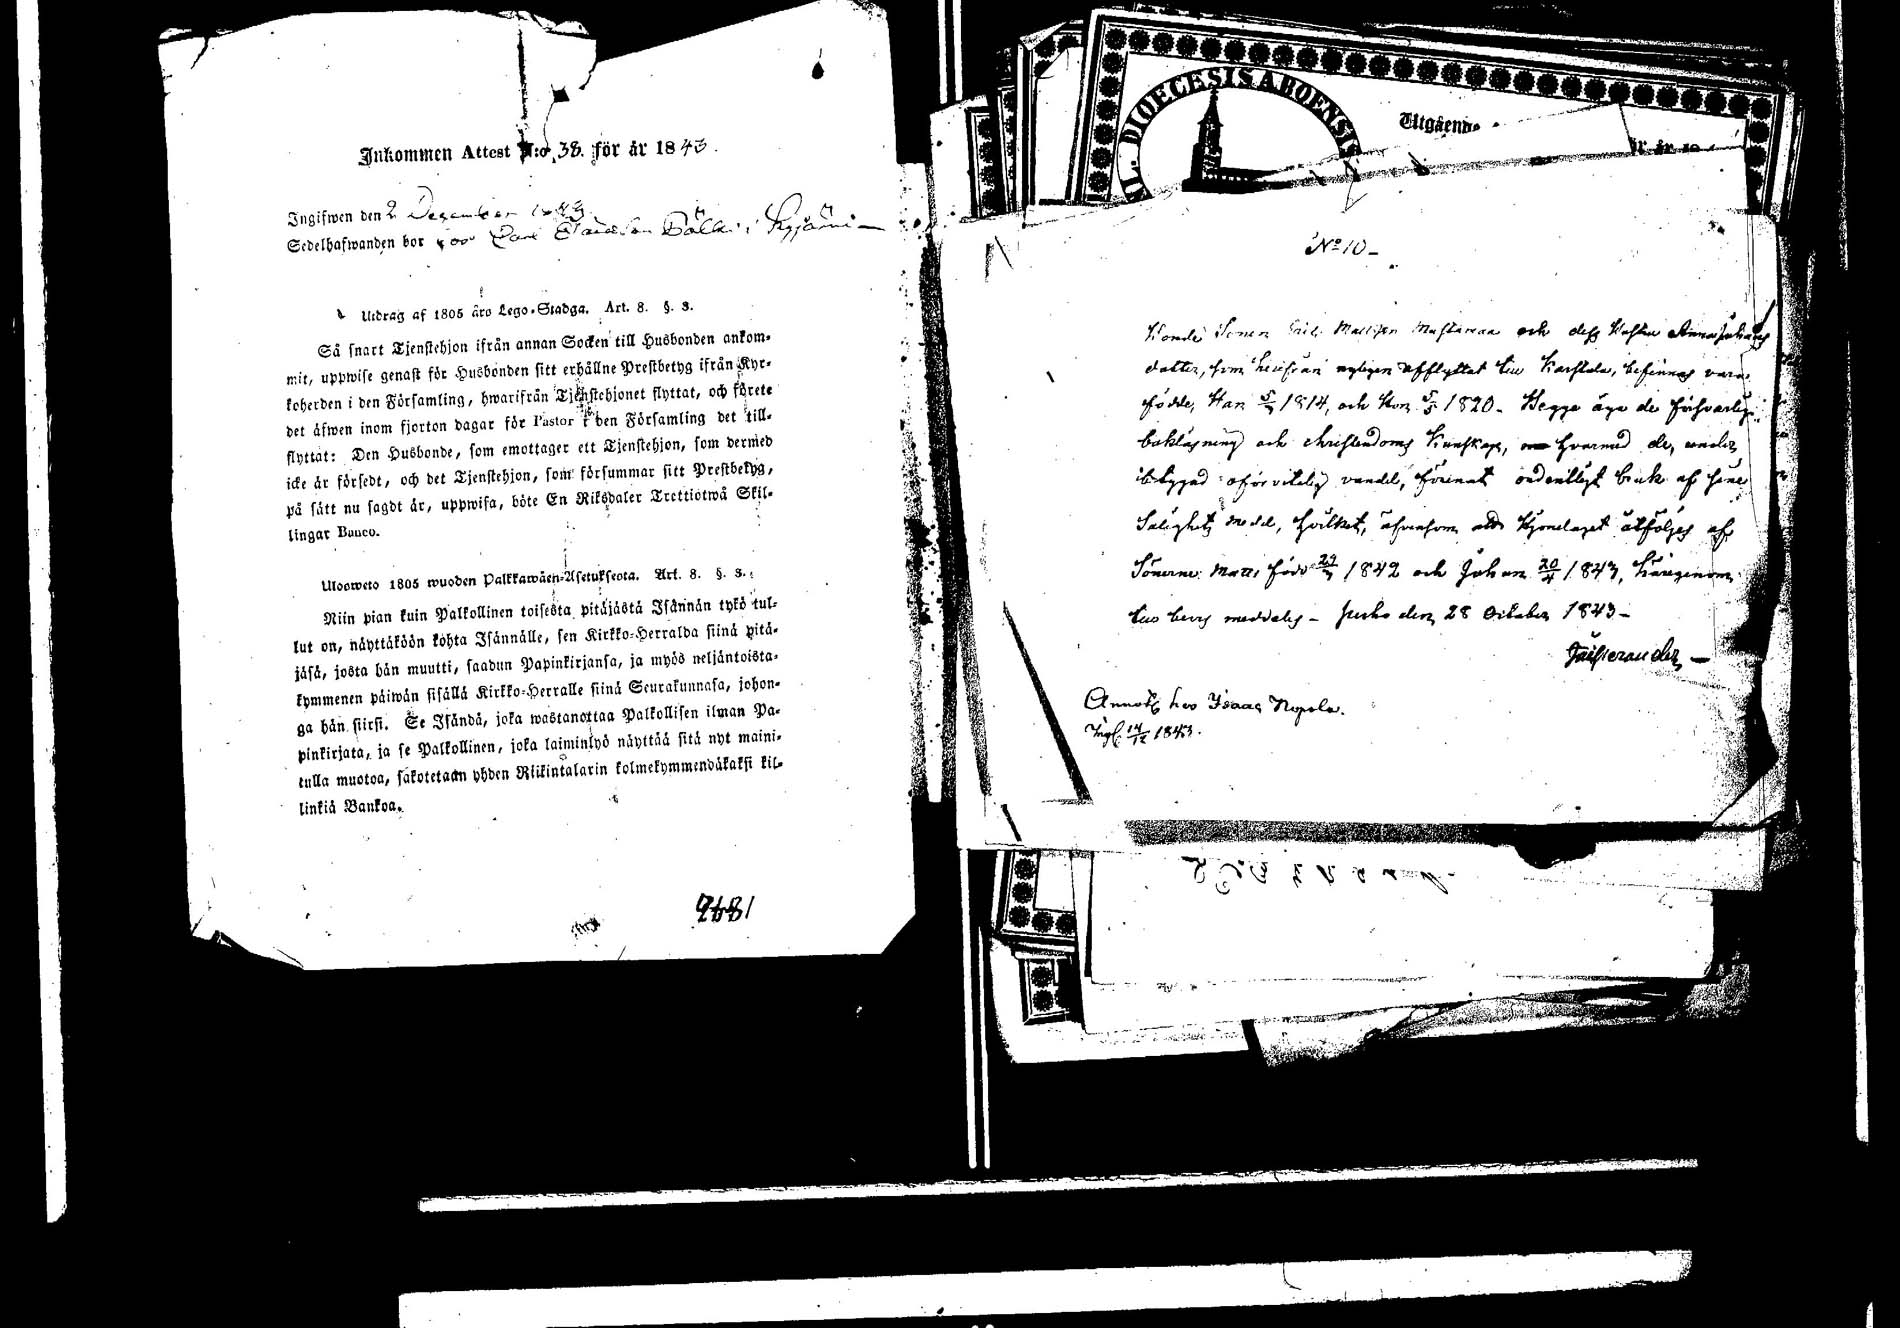 Inkommen Attest N:o 38. för år 1843.
Ingifwen den 2 December 1843
Sedelhafwanden bor hos Carl
Utdrag af 1805 års Lego-Stadga. Art. 8. §. 3.
Så snart Tjenstehjon ifrån annan Socken till Husbonden ankom-
mit, uppwise genast för Husbonden sitt erhållne Prestbetyg ifrån Kyr-
koherden i den Församling, hwarifrån Tjenstehjonet flyttat, och förete
det äfwen inom fjorton dagar för Pastor i den Församling det till-
flyttat: Den Husbonde, som emottager ett Tjenstehjon, som dermed
icke är försedt, och det Tjenstehjon, som försummar sitt Prestbetyg,
på sätt nu sagdt är, uppwisa, böte En Riksdaler Trettiotwå Skil-
lingar Banco.
Uloosweto 1805 wuoden Palkkawäen-Asetuksesta. Art. 8. §. 3.
Niin pian kuin Palkollinen toisesta pitäjästä Isännän tykö tul-
lut on, näyttäköön kohta Isännälle, sen Kirkko-Herralda siinä pitä-
jäsä, josta hän muutti, saadun Papinkirjansa, ja myös neljäntoista-
kymmenen päiwän sisällä Kirkko-Herralle siinä Seurakunnasa, johon-
ga hän siirsi. Se Isändä, joka wastanottaa Palkollisen ilman Pa-
pinkirjata, ja se Palkollinen, joka laiminlyö näyttää sitä nyt maini-
tulla muotoa, sakotetaan yhden Riikintalarin kolmekymmendäkaksi kil-
linkiä Bankoa.
DIOECESIS ABOENSIS
Utgående
år
No 10
Bonde Sonen Eric Mattsson och dess Hustru Anna Johans
dotter, som härifrån nyligen afflyttat till Karstula, befinnas vara
födde, Han 5/ 1814, och Hon 5/5 1820. Begge äga de försvarlig
bokläsning och christendoms kunskap, hvarmed de, under
betygad oförvitelig vandel, förenat ordentligt bruk af sine
Salighets medel, hvilket, äfvensom att Hjonelaget åtföljes af
Sönerne Matts född 29/ 1842 och Johan 20/4 1843, härigenom
till bevis meddelas. den 28 October 1843
Annotb hos Isaac Nopola.
Ingf. 14/12 1843.